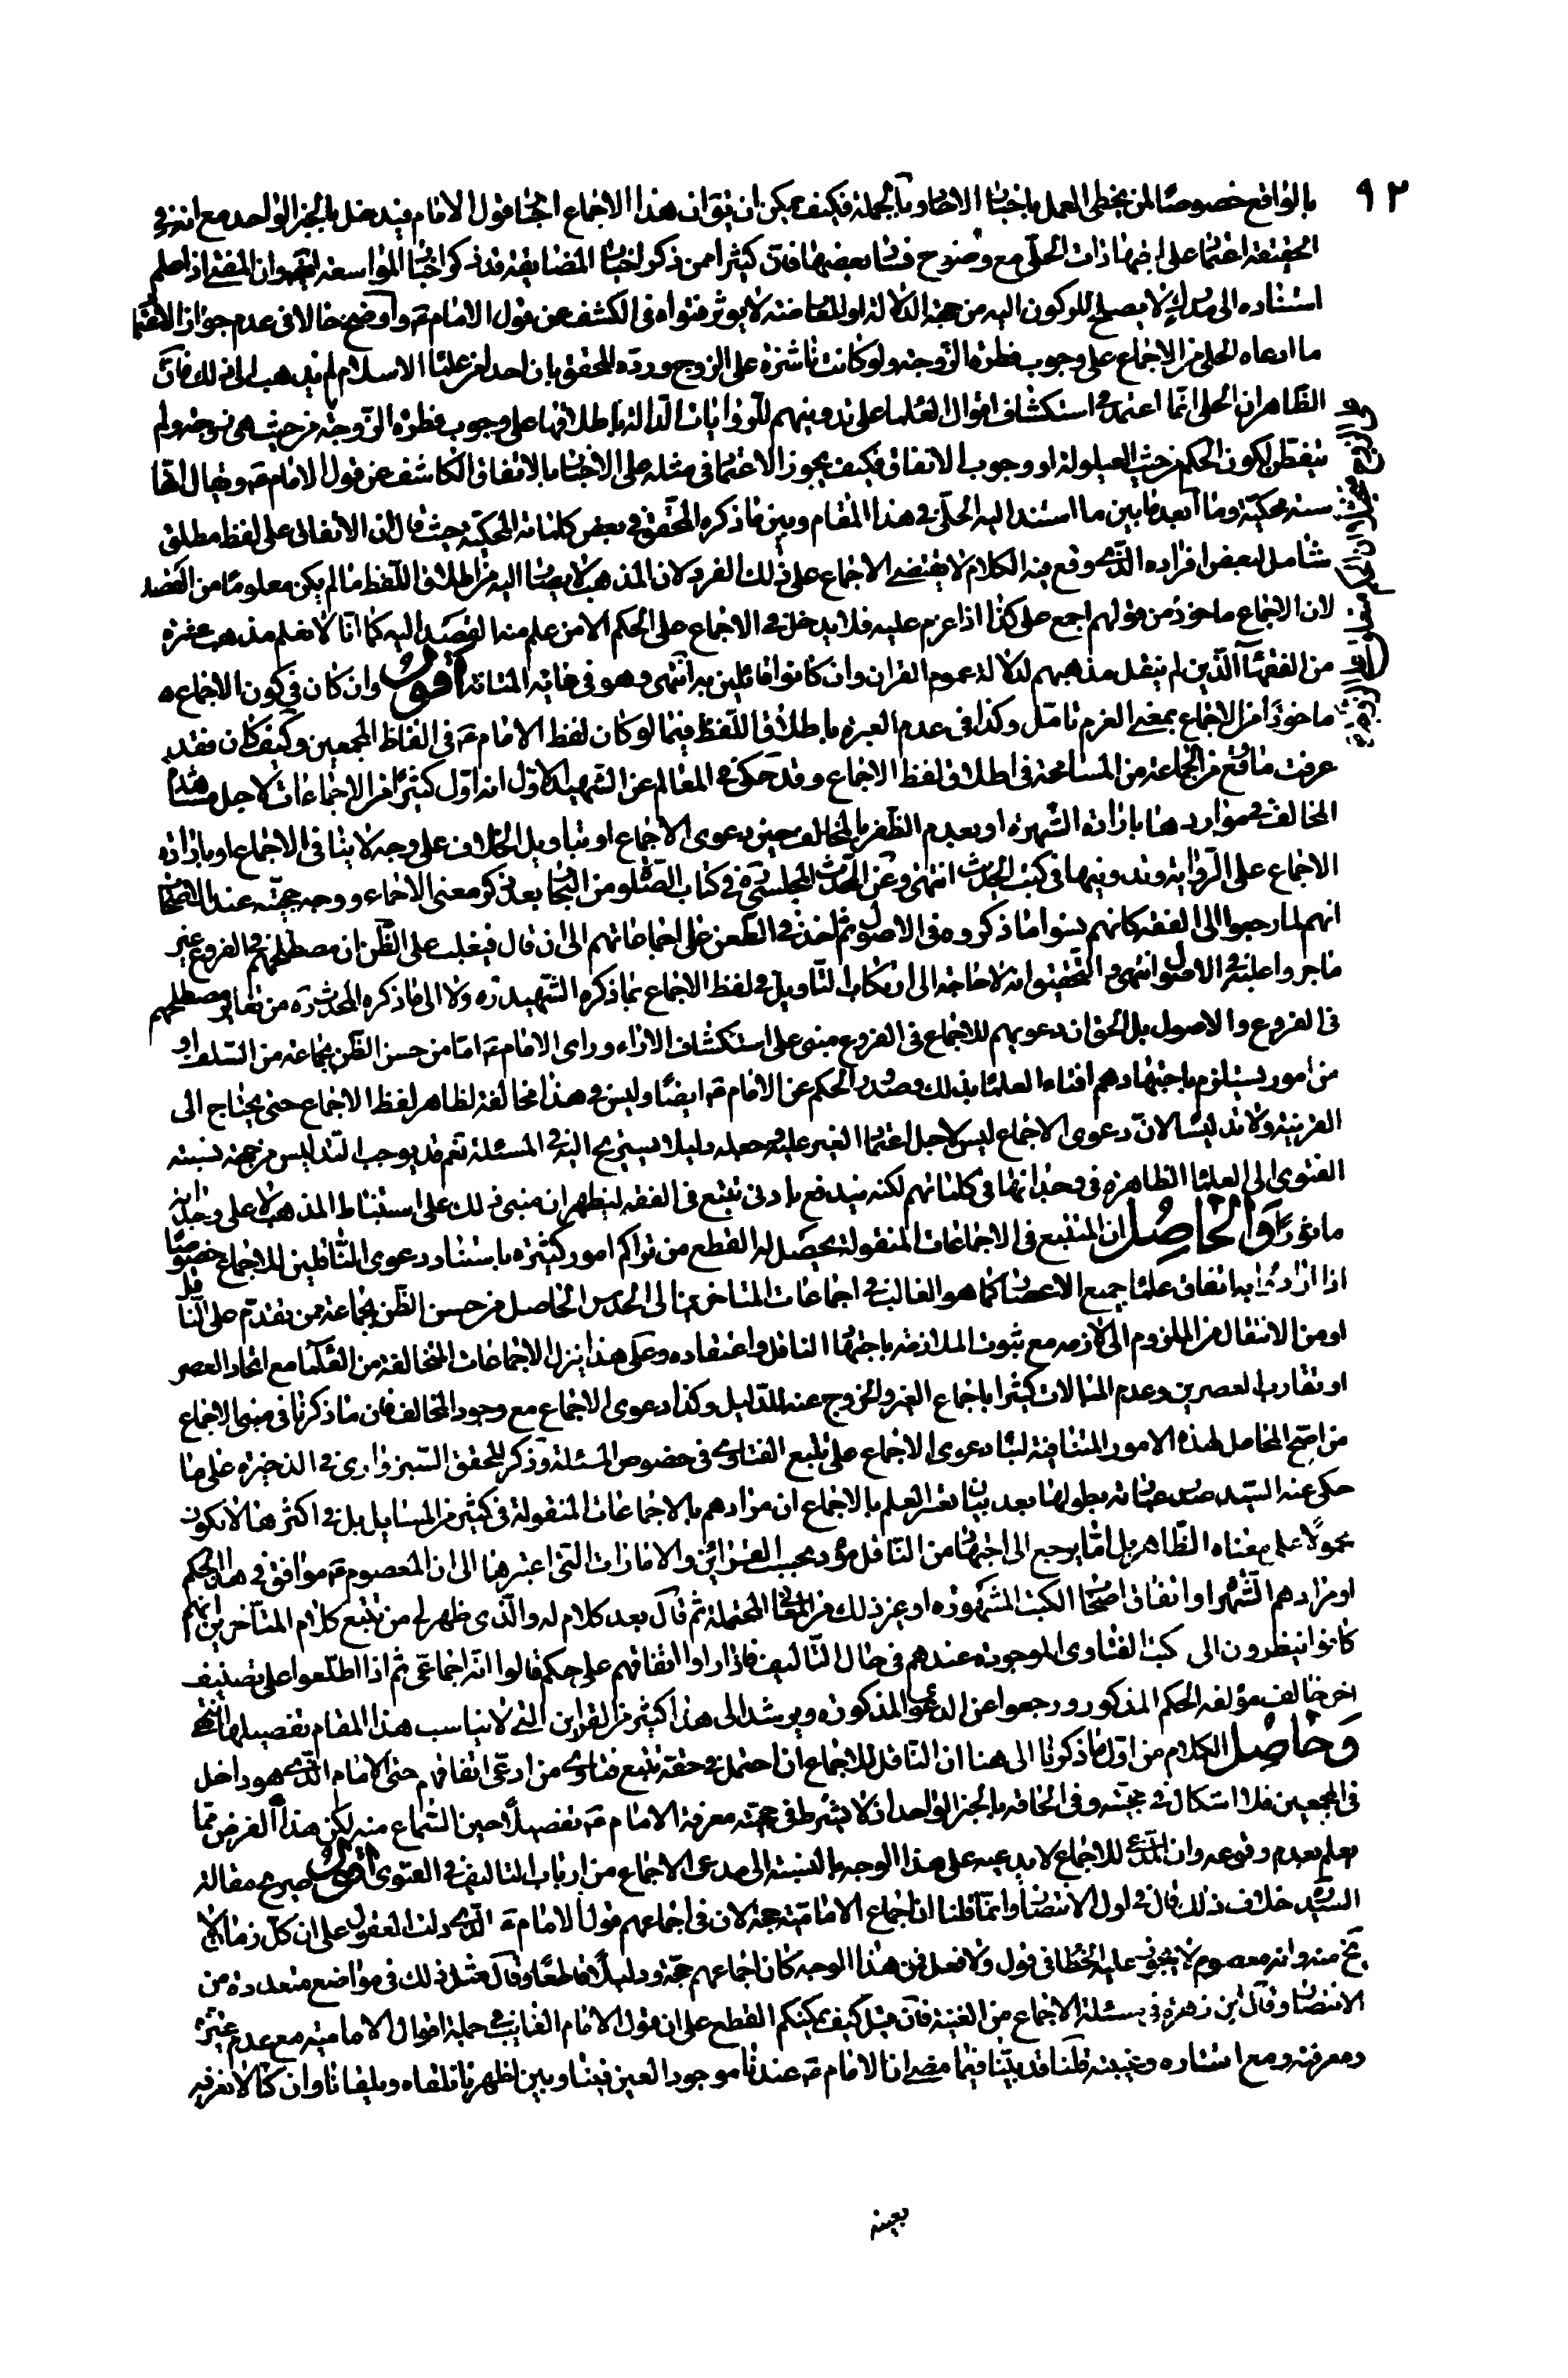 ٩٢
بالواقع خصوصا لمن يخطى العمل باخبار الاحاد وبالجملة فكيف يمكن ان يق ان هذا الاجماع اخبار قول الامام فيدخل بالخبر الواحد مع انه في
الحقيقة اعتماد على اجتهادات الحلى مع وضوح فساد بعضها فان كثيرا ممن ذكر اخبار المضايقة قد ذكر اخبار المواسعة ايضا وان المفتى اذا علم
استناده الى مدرك لا يصلح للركون اليه من جهة الدلالة او المعارضة لا يوثر فتواه في الكشف عن قول الامام ع واوضح حالا في عدم جواز الاعتماد
ما ادعاه الحلى من الاجماع على وجوب فطرة الزوجة ولو كانت ناشزة على الزوج ورده المحقق بان احدا من علماء الاسلام لم يذهب الى ذلك فان
الظاهر ان الحلى انما اعتمد في استكشاف اقوال العلماء على تدوينهم للروايات الدالة باطلاقها على وجوب فطرة الزوجة من حيث هى زوجة ولم
يتفطن لكون الحكم من حيث العيلولة او وجوب الانفاق فكيف يجوز الاعتماد في مثله على الاخبار بالاتفاق الكاشف عن قول الامام ع ويقال انها
سنة محكية وما ابعد ما بين ما استند اليه الحلى في هذا المقام وبين ما ذكره المحقق في بعض كلماته المحكية حيث قال ان الاتفاق على لفظ مطلق
شامل لبعض افراده الذى وقع فيه الكلام لا يقتضى الاجماع على ذلك الفرد لان المذهب لا يصار اليه من اطلاق اللفظ ما لم يكن معلوما من القصد
لان الاجماع ماخوذ من قولهم اجمع على كذا اذا عزم عليه فلا يدخل في الاجماع على الحكم الا من علم منه القصد اليه كما انا لا نعلم مذهب عشرة
من الفقهاء الذين لم ينقل مذهبهم لدلالة عموم القران وان كانوا قائلين به انتهى وهو في غاية المتانة اقول وان كان في كون الاجماع
ماخوذا من الاجماع بمعنى العزم تامل وكذا في عدم العبرة باطلاق اللفظ فيما لو كان لفظ الامام ع في الفاظ المجمعين وكيف كان فقد
عرفت ما وقع من الجماعة من المسامحة في اطلاق لفظ الاجماع وقد حكى في المعالم عن الشهيد الاول انه اول كثيرا من الاجماعات لاجل مشاهدة
المخالف في مواردها بارادة الشهرة او بعدم الظفر بالمخالف حين دعوى الاجماع او بتاويل الخلاف على وجه لا ينافى الاجماع او بارادة
الاجماع على الرواية وتدوينها في كتب الحديث انتهى وعن المحدث المجلسى ره في كتاب الصلوة من البحار بعد ذكر معنى الاجماع ووجه حجيته عند الاصحاب
انهم لما رجعوا الى الفقه كانهم نسوا ما ذكروه في الاصول ثم اخذ في الطعن على اجماعاتهم الى ان قال فيغلب على الظن ان مصطلحهم في الفروع غير
ما جروا عليه في الاصول انتهى والتحقيق انه لا حاجة الى ارتكاب التاويل في لفظ الاجماع بما ذكره الشهيد ره ولا الى ما ذكره المحدث ره من تغاير مصطلحهم
في الفروع والاصول بل الحق ان دعويهم للاجماع في الفروع مبنى على استكشاف الاراء وراى الامام ع اما من حسن الظن بجماعة من السلف او
من امور يستلزم باجتهادهم افتاء العلماء بذلك وصدور الحكم عن الامام ع ايضا وليس في هذا مخالفة لظاهر لفظ الاجماع حتى يحتاج الى
القرينة ولا تدليسا لان دعوى الاجماع ليس لاجل اعتماد الغير عليه وجعله دليلا يستريح اليه في المسئلة نعم قد يوجب التدليس من جهة نسبة
الفتوى الى العلماء الظاهرة في وجدانها في كلماتهم لكنه يندفع بادنى تتبع في الفقه ليظهر ان مبنى ذلك على استنباط المذهب لا على وجدانه
ماثورا والحاصل ان المتتبع في الاجماعات المنقولة يحصل له القطع من تراكم امور كثيرة باستناد دعوى الناقلين للاجماع خصوصا
اذا ارادوا به اتفاق علماء جميع الاعصار كما هو الغالب في اجماعات المتاخرين الى الحدس الحاصل من حسن الظن بجماعة من تقدم على الناقل
او من الانتقال من الملزوم الى لازمه مع ثبوت الملازمة باجتهاد الناقل واعتقاده وعلى هذا ينزل الاجماعات المتخالفة من العلماء مع اتحاد العصر
او تقارب العصرين وعدم المبالات كثيرا باجماع الغير والخروج عنه للدليل وكذا دعوى الاجماع مع وجود المخالف فان ما ذكرنا في مبنى الاجماع
من اصح المحامل لهذه الامور المتنافية لبناء دعوى الاجماع على تتبع الفتاوى في خصوص المسئلة وذكر المحقق السبزوارى في الذخيرة على ما
حكى عنه السيد بعد بيان تعسر العلم بالاجماع ان مرادهم بالاجماعات المنقولة في كثير من المسايل بل في اكثرها لا يكون
محمولا على معناه الظاهر بل اما يرجع الى اجتهاد من الناقل مؤد بحسب القرائن والامارات التى اعتبرها الى ان المعصوم ع موافق في هذا الحكم
او مرادهم الشهرة او اتفاق اصحاب الكتب المشهورة او غير ذلك من المعانى المحتملة ثم قال بعد كلام له والذى ظهر لى من تتبع كلام المتاخرين انهم
كانوا ينظرون الى كتب الفتاوى الموجودة عندهم في حال التاليف فاذا راوا اتفاقهم على حكم قالوا انه اجماعى ثم اذا اطلعوا على تصنيف
اخر خالف مؤلفه الحكم المذكور ورجعوا عن الدعوى المذكورة ويرشد الى هذا كثير من القراين التى لا يناسب هذا المقام تفصيلها انتهى
وحاصل الكلام من اول ما ذكرنا الى هنا ان الناقل للاجماع ان احتمل في حقه تتبع فتاوى من ادعى اتفاقهم حتى الامام الذى هو داخل
في المجمعين فلا اشكال في حجيته وفي الحاقه بالخبر الواحد اذ لا يشترط في حجيته معرفة الامام ع تفصيلا حين السماع منه لكن هذا الفرض مما
يعلم بعدم وقوعه وان المدعى للاجماع لا يدعيه على هذا الوجه بالنسبة الى مدعى الاجماع من ارباب التاليف في الفتوى اقول صريح مقالة
السيد ره خلاف ذلك قال في اول الانتصار وانما قلنا ان اجماع الامامية حجة لان في اجماعهم قول الامام ع الذى دلت العقول على ان كل زمان لا
يخ منه وانه معصوم لا يجوز عليه الخطا في قول ولا فعل فمن هذا الوجه كان اجماعهم حجة ودليلا قاطعا وقال مثل ذلك في مواضع متعددة من
الانتصار وقال ابن زهرة في مسئلة الاجماع من الغنية فان قيل كيف يمكنكم القطع على ان قول الامام الغايب في جملة اقوال الامامية مع عدم تميزه
ومعرفته ومع استتاره وغيبته قلنا قد بينا فيما مضى ان الامام ع عندنا موجود العين فينا وبين اظهرنا نلقاه ويلقانا وان كنا لا نعرفه
بعينه